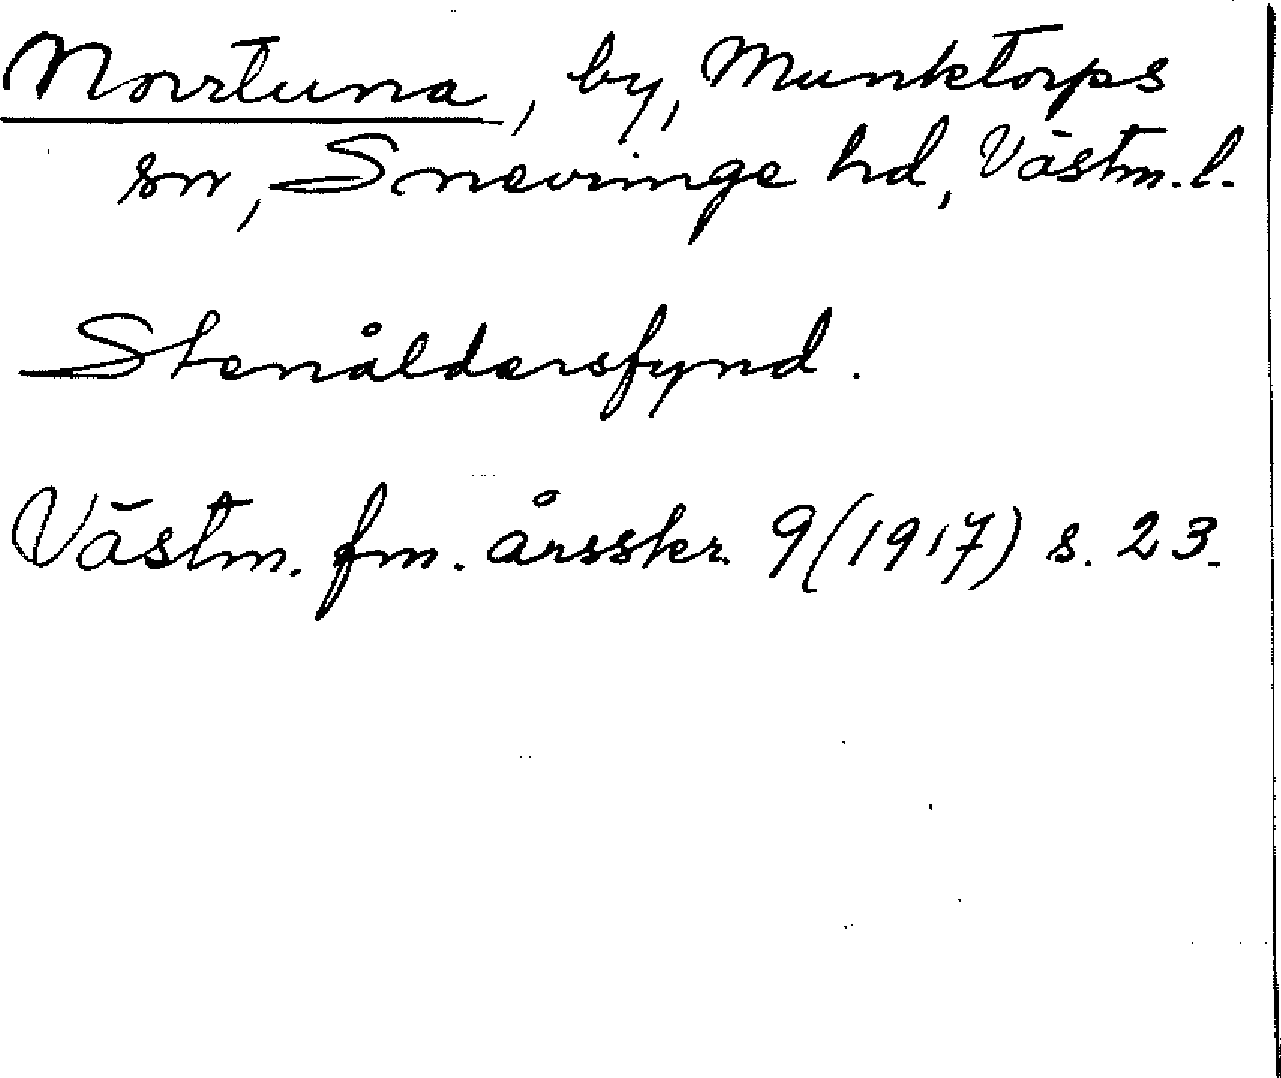 Norrtuna, by, Munktorps
sn, Snevringe hd, Västm. l.
Stenåldersfynd.
Västm. fm. årsskr. 9 (1917) s. 23.